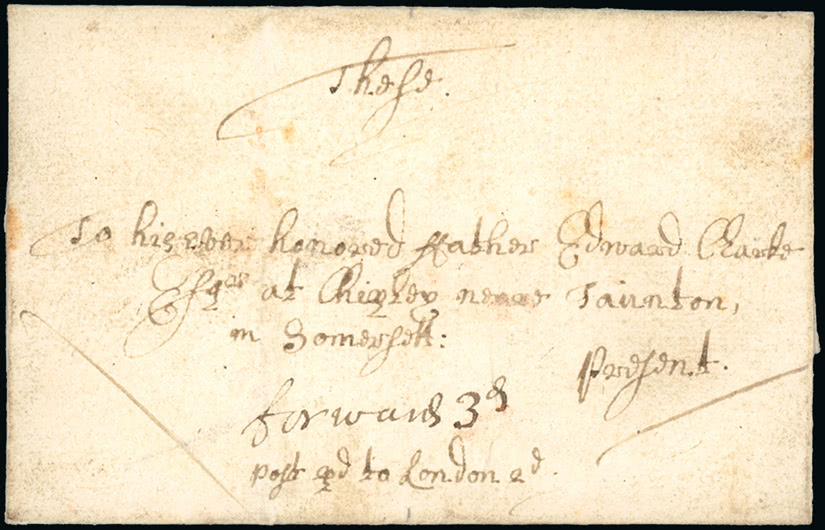 These.
To his ever honored ffather Edward Clarke
Esqr at Chipley neare Taunton,
in Somersett:
present.
forward 3d
post pd to London 2d